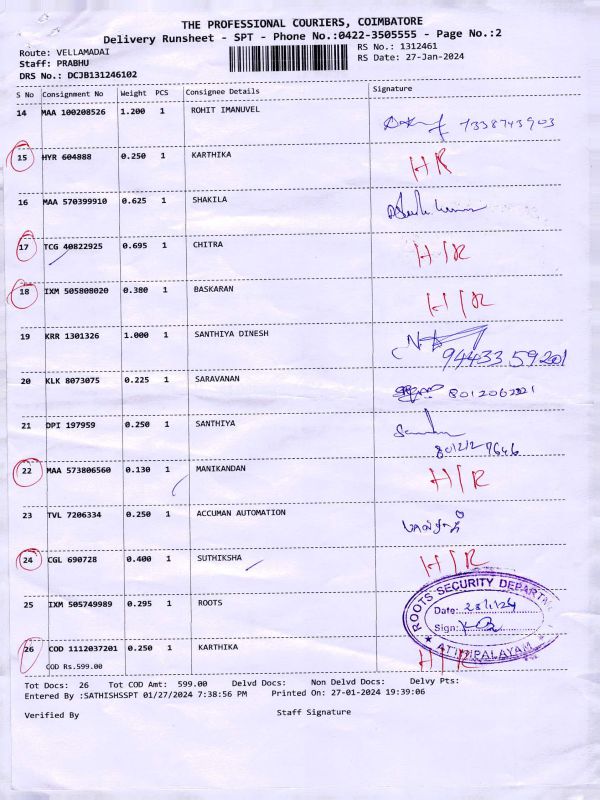 THE PROFESSIONAL COURIERS, COIMBATORE
Delivery Runsheet - SPT - Phone No.:0422-3505555 - Page No.:2
Route: VELLAMADAI
RS No.: 1312461
Staff: PRABHU
RS Date: 27-Jan-2024
DRS No.: DCJB131246102
S No Consignment No Weight PCS Consignee Details Signature
14 MAA 100208526 1.200 1 ROHIT IMANUVEL
7338743903
15 HYR 604888 0.250 1 KARTHIKA HR
16 MAA 570399910 0.625 1 SHAKILA
17 TCG 40822925 0.695 1 CHITRA HIR
18 IXM 505808020 0.380 1 BASKARAN HIR
19 KRR 1301326 1.000 1 SANTHIYA DINESH
94433 59201
20 KLK 8073075 0.225 1 SARAVANAN
21 DPI 197959 0.250 1 SANTHIYA
22 MAA 573806560 0.130 1 MANIKANDAN HIR
23 TVL 7206334 0.250 1 ACCUMAN AUTOMATION
24 CGL 690728 0.400 1 SUTHIKSHA HIR
25 IXM 505749989 0.295 1 ROOTS
ROOTS SECURITY
Date: 28/1/24
Sign:
26 COD 1112037201 0.250 1 KARTHIKA HIR
COD Rs.599.00
Tot Docs: 26 Tot COD Amt: 599.00 Delvd Docs: Non Delvd Docs: Delvy Pts:
Entered By :SATHISHSSPT 01/27/2024 7:38:56 PM Printed On: 27-01-2024 19:39:06
Verified By Staff Signature